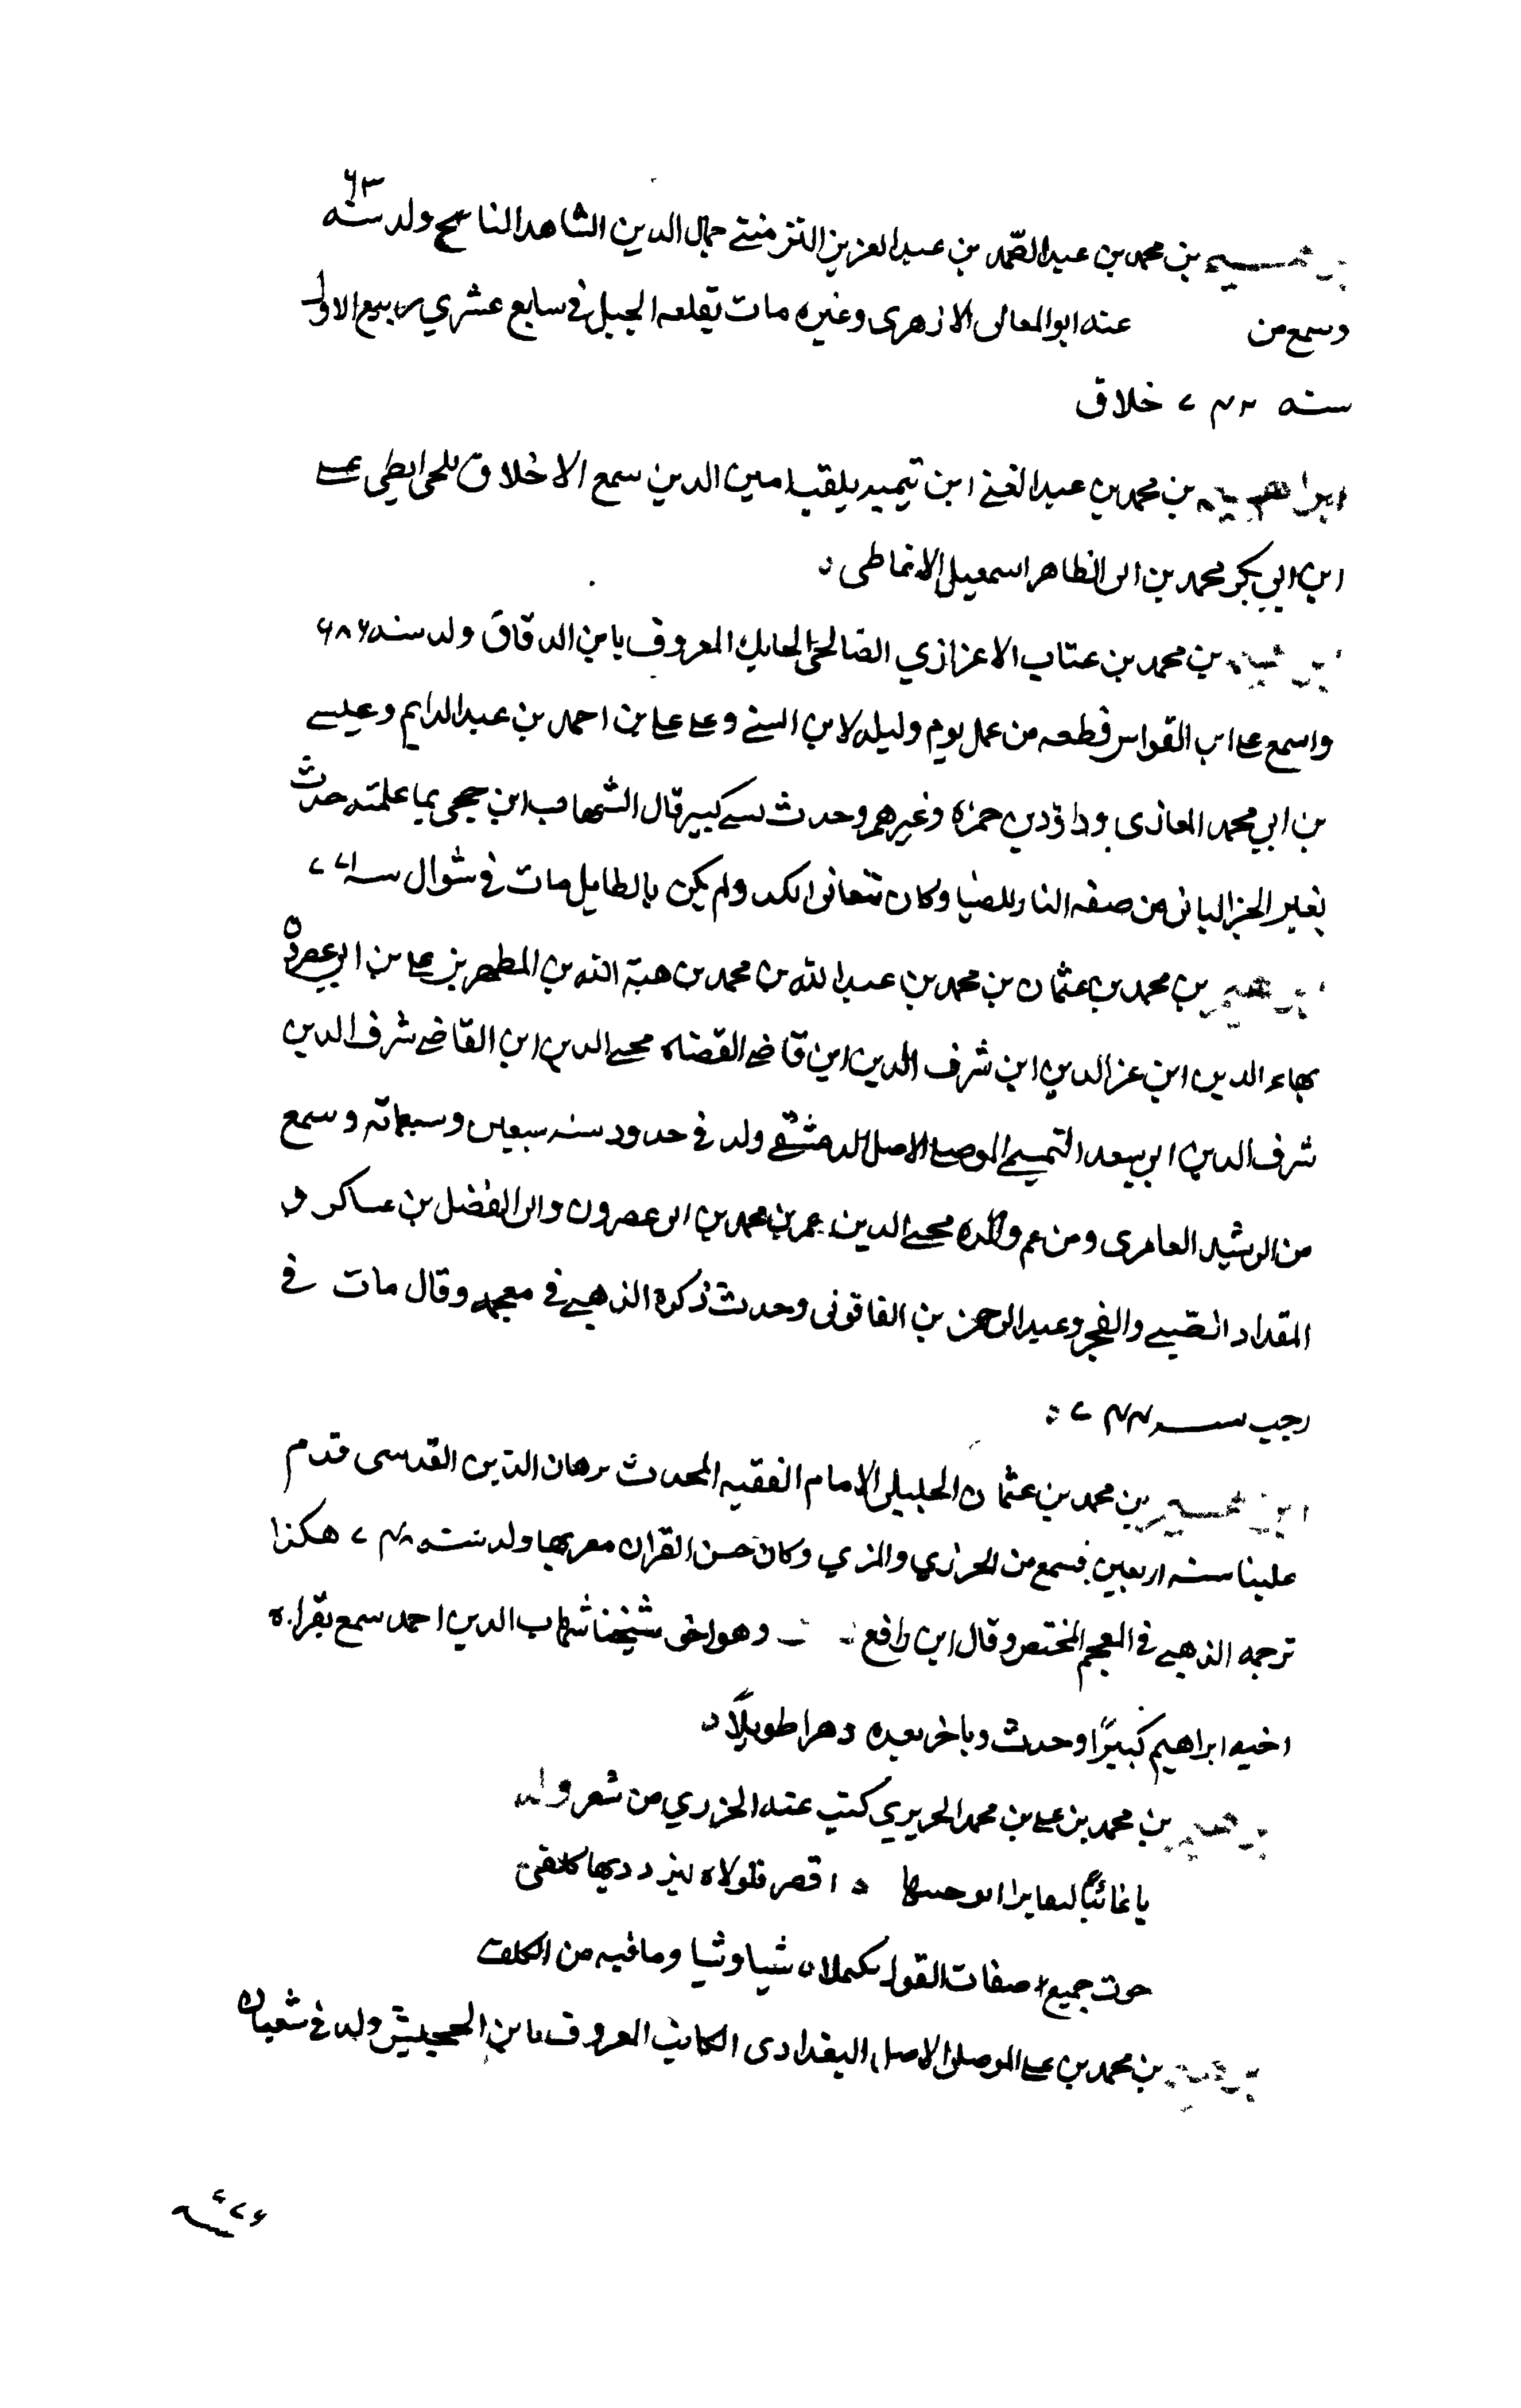 ٦٣
ابراهيم بن محمد بن عبد الصّمد بن عبد العزيز التزمنتي جمال الدين الشاهد الناسخ ولد سنه
وسمع من عنه ابو المعالى الازهرى وغيره مات بقلعه الجبل فى سابع عشري ربيع الاول
سنه ٧٤٢ خلاق
ابراهيم بن محمد بن عبد الغني ابن تيميه يلقب امين الدين سمع الاخلاق للخرايطي على
ابن ابي بكر محمد بن ابى الطاهر اسمعيل الانماطى
ابراهيم بن محمد بن عتاب الاعزازي الصالحى الحايك المعروف بابن الدقاق ولد سنه ٦٨٦
واسمع على ابن القواس قطعه من عمل يوم وليله لابن السني وعلى على بن احمد بن عبد الدايم وعيسى
بن ابي محمد المغازى وداؤد بن حمزه وغيرهم وحدث كبير قال الشهاب ابن حجى بما علمته حدث
بغير الجز الثانى من صفه النار للضيا وكان يتعانى الكد ولم يكن بالطايل مات فى شوال
ابراهيم بن محمد بن عثمان بن محمد بن عبد الله بن محمد بن هبة الله بن المطهر بن على بن ابي عصرون
بهاء الدين ابن عز الدين ابن شرف الدين ابن قاضى القضاه محيى الدين ابن القاضى شرف الدين
شرف الدين ابي سعد التميمي الموصلى الاصل الدمشقى ولد فى حدود سنه سبعين وسبعمائه وسمع
من الرشيد العامرى ومن عم والده محيى الدين عمر بن محمد بن ابى عصرون وابى الفضل بن عساكر و
المقداد القيسى والفخر وعبد الرحمن بن الفاقونى وحدث ذكره الذهبى فى معجمه وقال مات فى
رجب سنه ٧٤٤
ابراهيم بن محمد بن عثمان الخليلى الامام الفقيه المحدث برهان الدّين القدسى قدم
علينا سنه اربعين فسمع من الجزري والمزي وكان حسن القران معربها ولد سنه هكذا
ترجمه الذهبى فى المعجم المختص وقال ابن رافع وهو اخى شيخنا شهاب الدين احمد سمع بقراءة
اخيه ابراهيم كثيرًا وحدث وتاخر بعده دهرا طويلًا
ابراهيم بن محمد بن على بن محمد الحريري كتب عنه الجزري من شعر وله
يا عائبًا اقصر فلولاه
حوت جميع صفات القول وما فيه من الكلف
ابراهيم بن محمد بن على الموصلى الاصل البغدادى الكاتب المعروف بابن ولد فى شعبان
سنه ٦٧٤